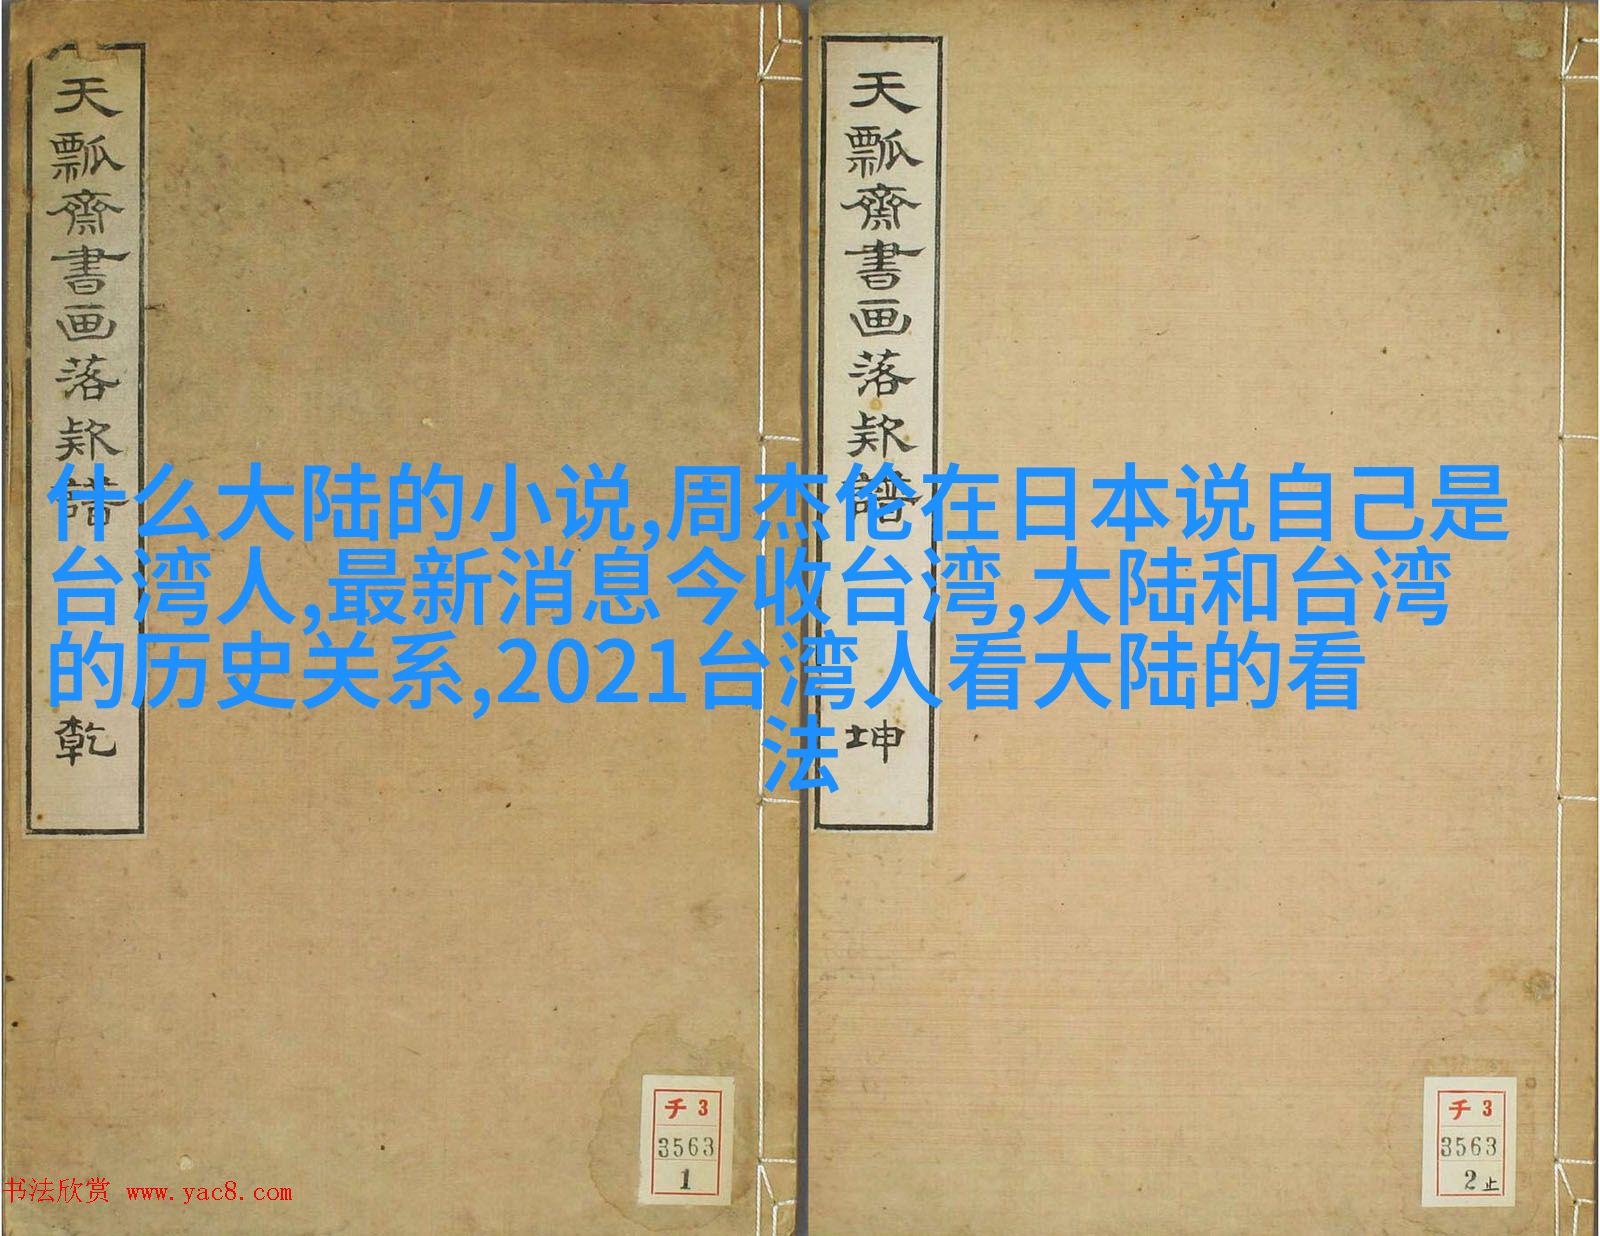 天瓢齋書画落欵譜 乾
天瓢齋書画落欵譜 坤
什么大陆的小说,周杰伦在日本说自己是
台湾人,最新消息今收台湾,大陆和台湾
的历史关系,2021台湾人看大陆的看
法
チ 3
3563
1
チ 3
3563
2止
书法欣赏 www.yac8.com